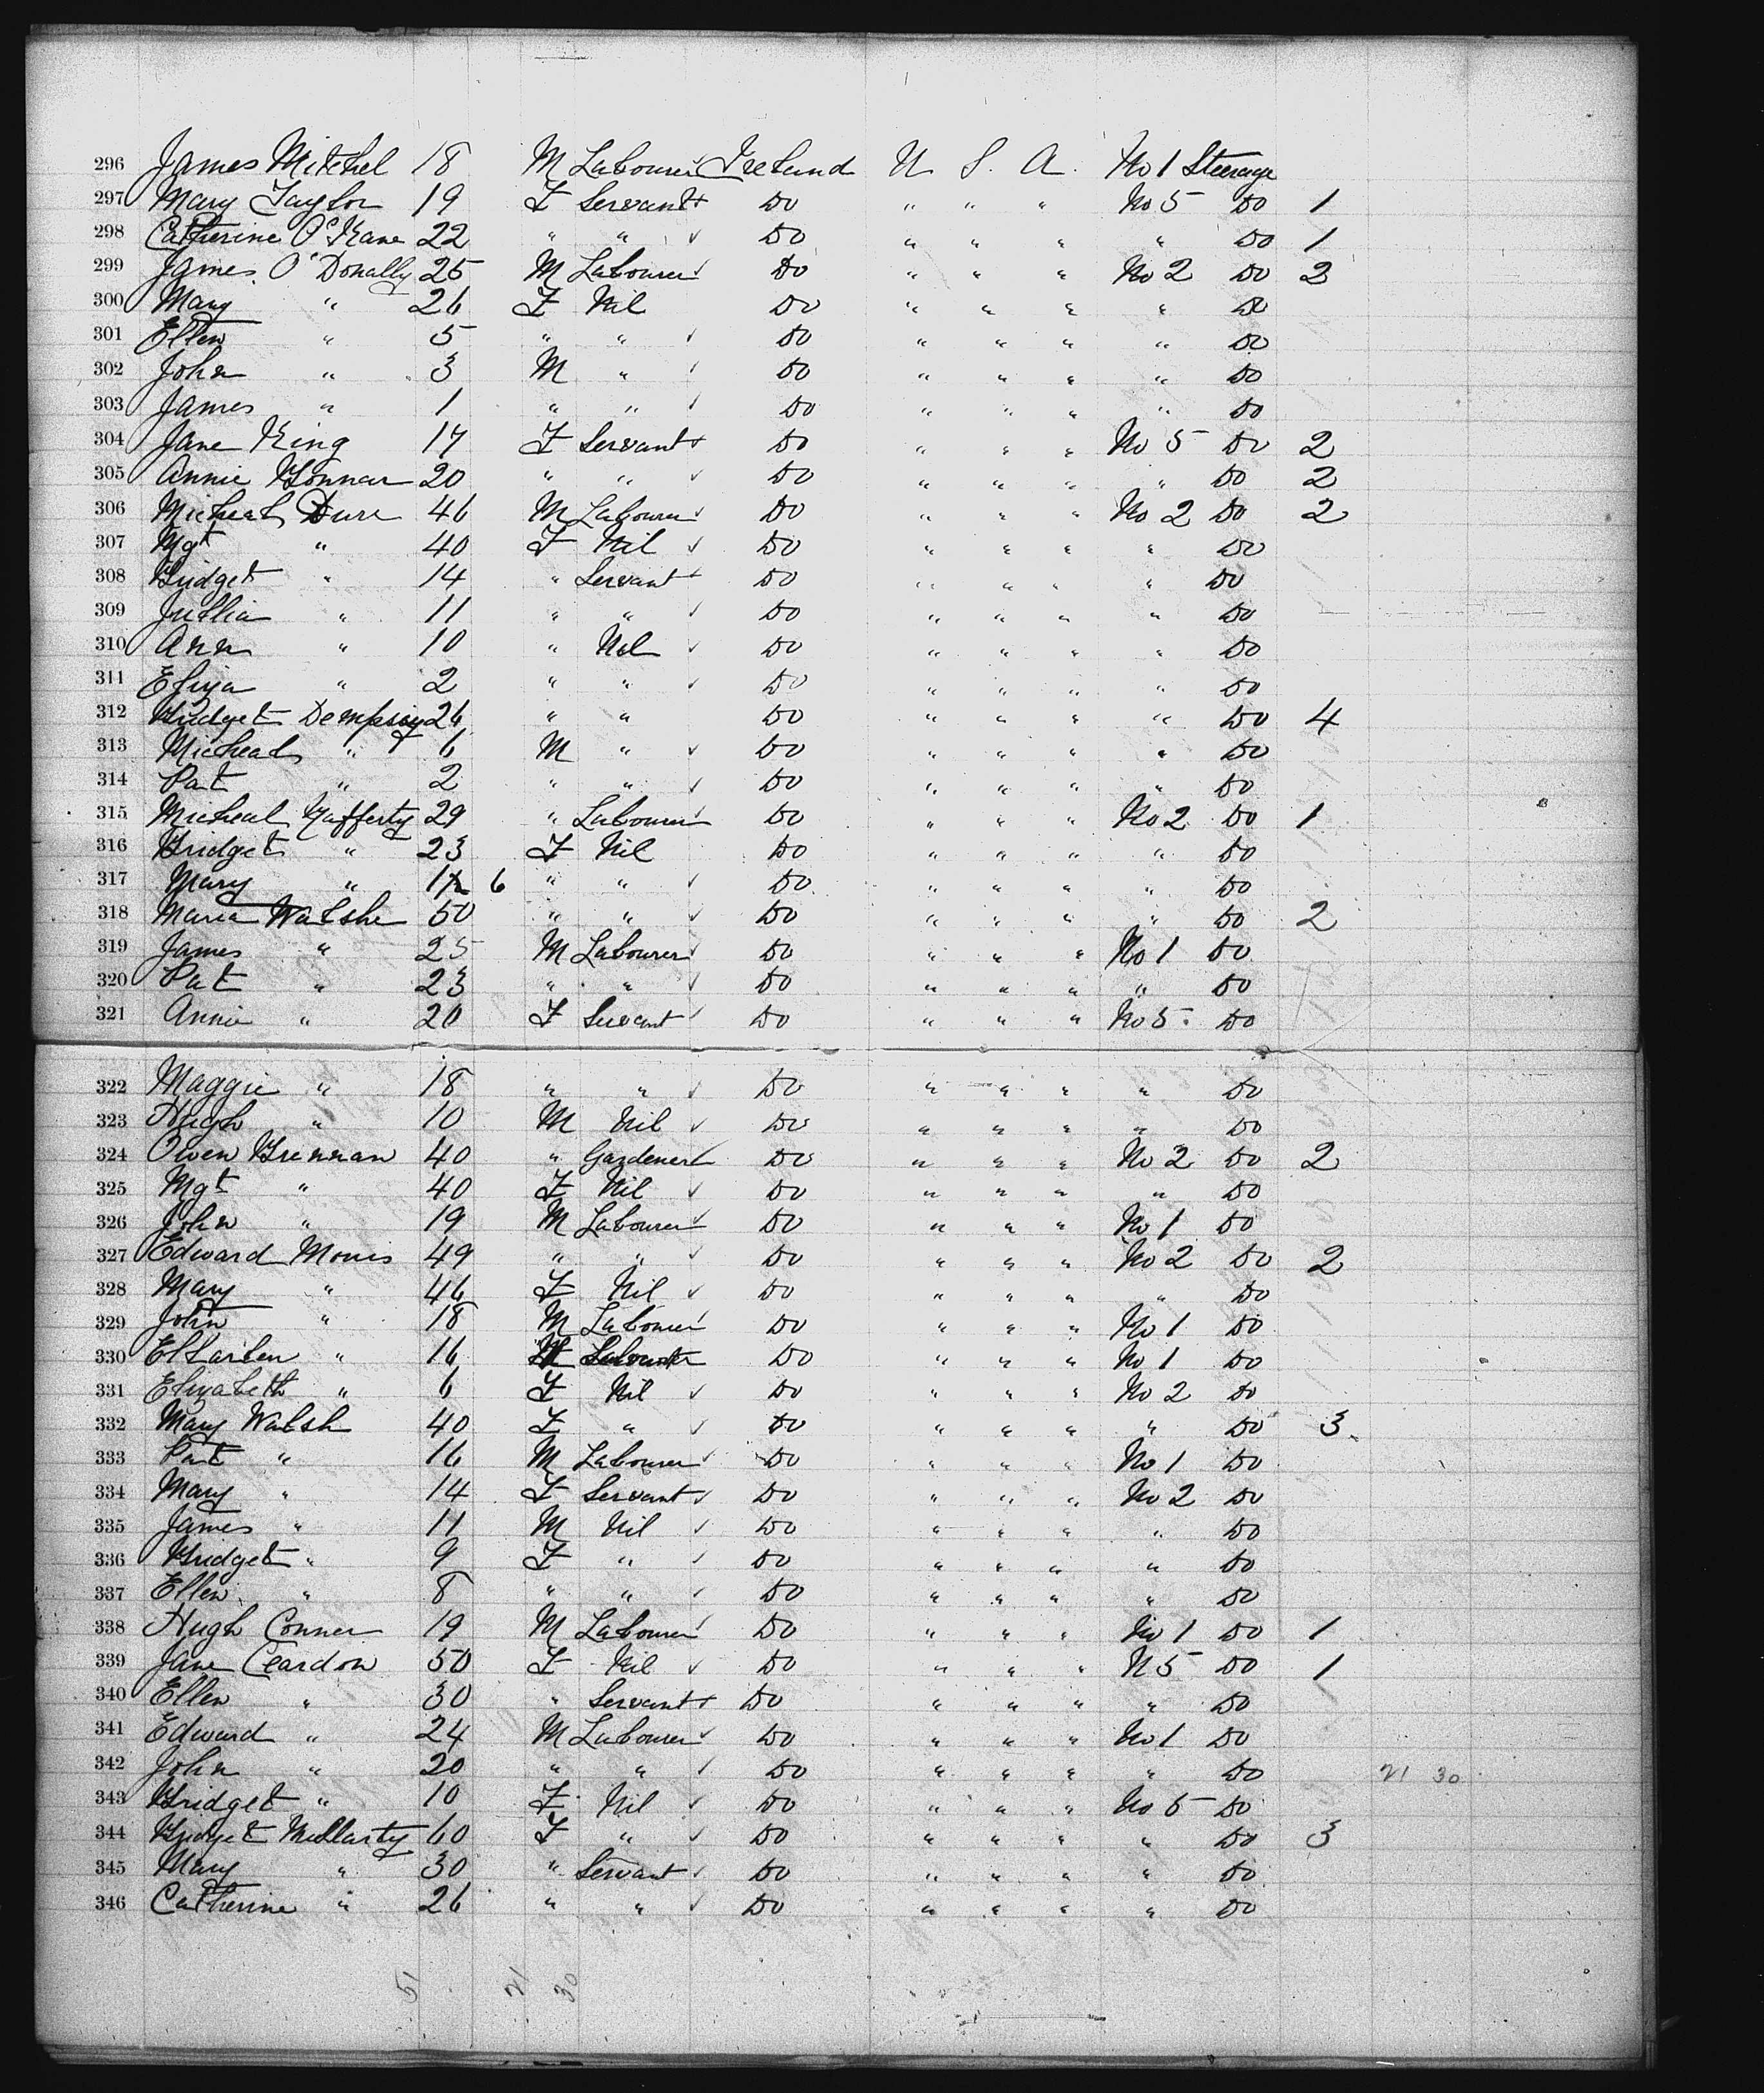 296 James Mitchel 18 M Labourer Ireland U. S. A. No 1 Steerage
297 Mary Taylor 19 F Servant Do " " " No 5 Do 1
298 Catherine O'Kane 22 " " Do " " " " Do 1
299 James O'Donally 25 M Labourer Do " " " No 2 Do 2
300 Mary " 26 F Nil Do " " " " Do
301 Ellen " 5 " " Do " " " " Do
302 John " 3 M " Do " " " " Do
303 James " 1 " " Do " " " " Do
304 Jane King 17 F Servant Do " " " No 5 Do 2
305 Annie Bonnar 20 " " Do " " " " Do 2
306 Micheal Dure 46 M Labourer Do " " " No 2 Do 2
307 Mgt " 40 F Nil Do " " " " Do
308 Bridget " 14 " Servant Do " " " " Do
309 Jullia " 11 " " Do " " " " Do
310 Ann " 10 " Nil Do " " " " Do
311 Eliza " 2 " " Do " " " " Do
312 Bridget Dempsey 26 " " Do " " " " Do 4
313 Micheal " 6 M " Do " " " " Do
314 Pat " 2 " " Do " " " " Do
315 Micheal Gafferty 29 " Labourer Do " " " No 2 Do 1
316 Bridget " 23 F Nil Do " " " " Do
317 Mary " 6 " " Do " " " " Do
318 Maria Walshe 50 " " Do " " " " Do 2
319 James " 25 M Labourer Do " " " No 1 Do
320 Pat " 23 " " Do " " " " Do
321 Annie " 20 F Servant Do " " " No 5 Do
322 Maggie " 18 " " Do " " " " Do
323 Hugh " 10 M Nil Do " " " " Do
324 Owen Brennan 40 " Gardener Do " " " No 2 Do 2
325 Mgt " 40 F Nil Do " " " " Do
326 John " 19 M Labourer Do " " " No 1 Do
327 Edward Morris 49 " " Do " " " No 2 Do 2
328 Mary " 46 F Nil Do " " " " Do
329 John " 18 M Labourer Do " " " No 1 Do
330 " 16 Do " " " No 1 Do
331 Elizabeth " 6 F Nil Do " " " No 2 Do
332 Mary Walsh 40 F " Do " " " " Do 3
333 Pat " 16 M Labourer Do " " " No 1 Do
334 Mary " 14 F Servant Do " " " No 2 Do
335 James " 11 M Nil Do " " " " Do
336 Bridget " 9 F " Do " " " " Do
337 Ellen " 8 " " Do " " " " Do
338 Hugh Conner 19 M Labourer Do " " " No 1 Do 1
339 Jane Ceardon 50 F Nil Do " " " N 5 Do 1
340 Ellen " 30 " Servant Do " " " " Do
341 Edward " 24 M Labourer Do " " " No 1 Do
342 John " 20 " " Do " " " " Do 21 30
343 Bridget " 10 F Nil Do " " " No 5 Do
344 Bridget 60 F " Do " " " " Do 3
345 Mary " 30 " Servant Do " " " " Do
346 Catherine " 26 " " Do " " " " Do
51 21 30